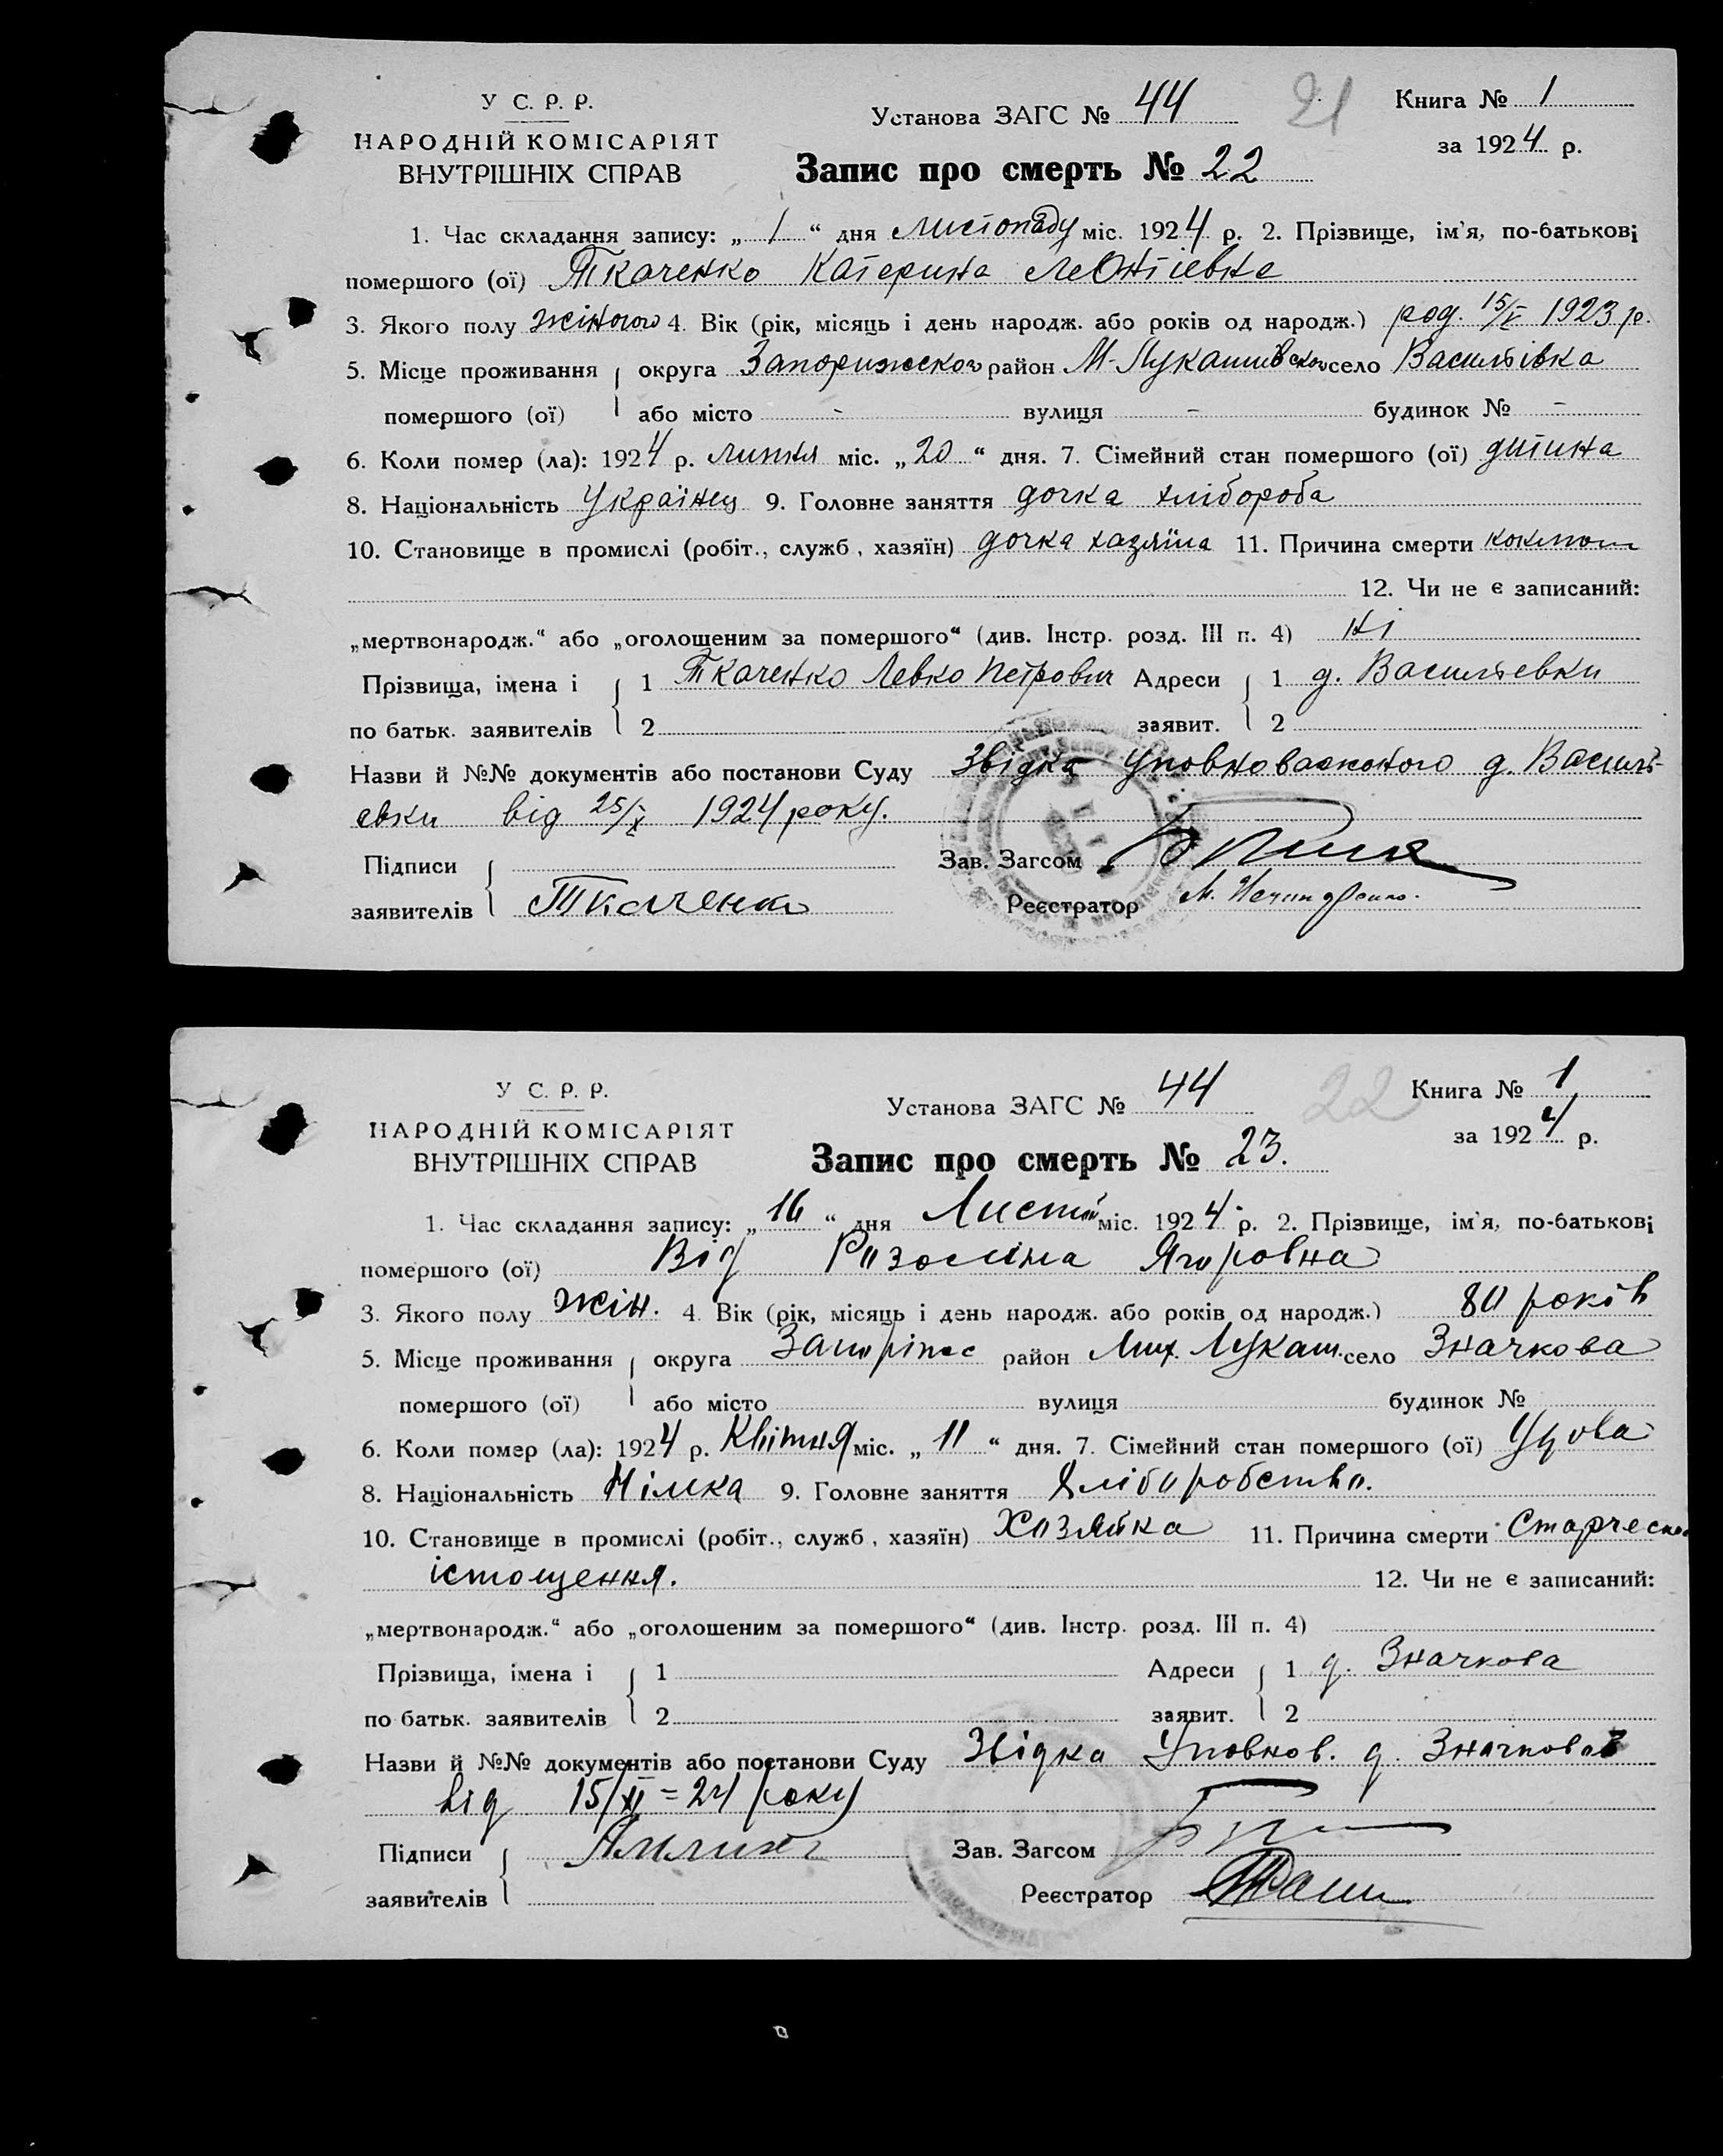 У С. Р. Р.
НАРОДНІЙ КОМІСАРІЯТ
ВНУТРІШНІХ СПРАВ
Установа ЗАГС № 44
21
Книга № 1
за 1924 р.
Запис про смерть № 22
1. Час складання запису: „ 1 “ дня листопаду міс. 1924 р. 2. Прізвище, ім'я, по-батькові
помершого (ої) Ткаченко Катерина Леонтіевна
3. Якого полу жіночого 4. Вік (рік, місяць і день народж. або років од народж.) род. 15/V 1923 р.
5. Місце проживання округа Запорижськоі район М-Лукашівськоі село Васильівка
помершого (ої) або місто - вулиця - будинок № -
6. Коли помер (ла): 1924 р. липня міс. „ 20 “ дня. 7. Сімейний стан помершого (ої) дитина
8. Національність Українец 9. Головне заняття дочка хлібороба
10. Становище в промислі (робіт., служб, хазяїн) дочка хазяїна 11. Причина смерти коклюш
12. Чи не є записаний:
„мертвонародж.“ або „оголошеним за помершого“ (див. Інстр. розд. III п. 4) Ні
Прізвища, імена і 1 Ткаченко Левко Петрович Адреси 1 д. Васильевки
по батьк. заявителів 2 заявит. 2
Назви й №№ документів або постанови Суду Звідка Уповноваженого д. Василь-
евки від 25/X 1924 року.
Підписи Зав. Загсом
заявителів Ткаченко Реєстратор М.
У С. Р. Р.
НАРОДНІЙ КОМІСАРІЯТ
ВНУТРІШНІХ СПРАВ
Установа ЗАГС № 44
22
Книга № 1
за 1924 р.
Запис про смерть № 23.
1. Час складання запису: „ 16 “ дня Листоп міс. 1924 р. 2. Прізвище, ім'я, по-батькові
помершого (ої) Від Розаліна Ягоровна
3. Якого полу жін. 4. Вік (рік, місяць і день народж. або років од народж.) 80 років
5. Місце проживання округа Запоріжс район Мих. Лукаш. село Значкова
помершого (ої) або місто вулиця будинок №
6. Коли помер (ла): 1924 р. Квітня міс. „ 11 “ дня. 7. Сімейний стан помершого (ої) Удова
8. Національність Німка 9. Головне заняття Хліборобство.
10. Становище в промислі (робіт., служб, хазяїн) Хозяйка 11. Причина смерти Старческе
істощення.
12. Чи не є записаний:
„мертвонародж.“ або „оголошеним за помершого“ (див. Інстр. розд. III п. 4)
Прізвища, імена і 1 Адреси 1 д. Значкова
по батьк. заявителів 2 заявит. 2
Назви й №№ документів або постанови Суду Звідка Уповнов. д. Значковоі
від 15/XI = 24 року
Підписи Зав. Загсом
заявителів Реєстратор